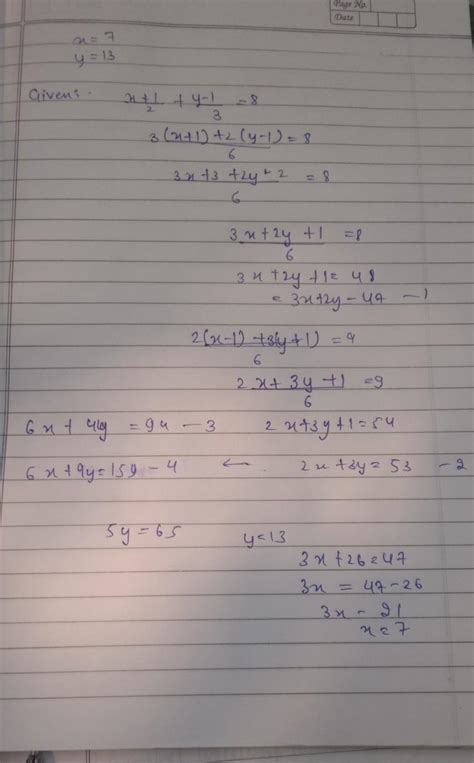 Page No.
Date
x = 7
y = 13
Given:- x+1/2 + y-1/3 = 8
3(x+1)+2(y-1)/6 = 8
3x+3+2y-2/6 = 8
3x+2y+1/6 = 8
3x+2y+1 = 48
= 3x+2y-47 —1
2(x-1)+3(y+1)/6 = 9
2x+3y+1/6 = 9
6x+4y = 94 —3 2x+3y+1=54
6x+9y=159 —4 ← 2x+3y=53 —2
5y=65 y=13
3x+26=47
3x = 47-26
3x - 21
x=7